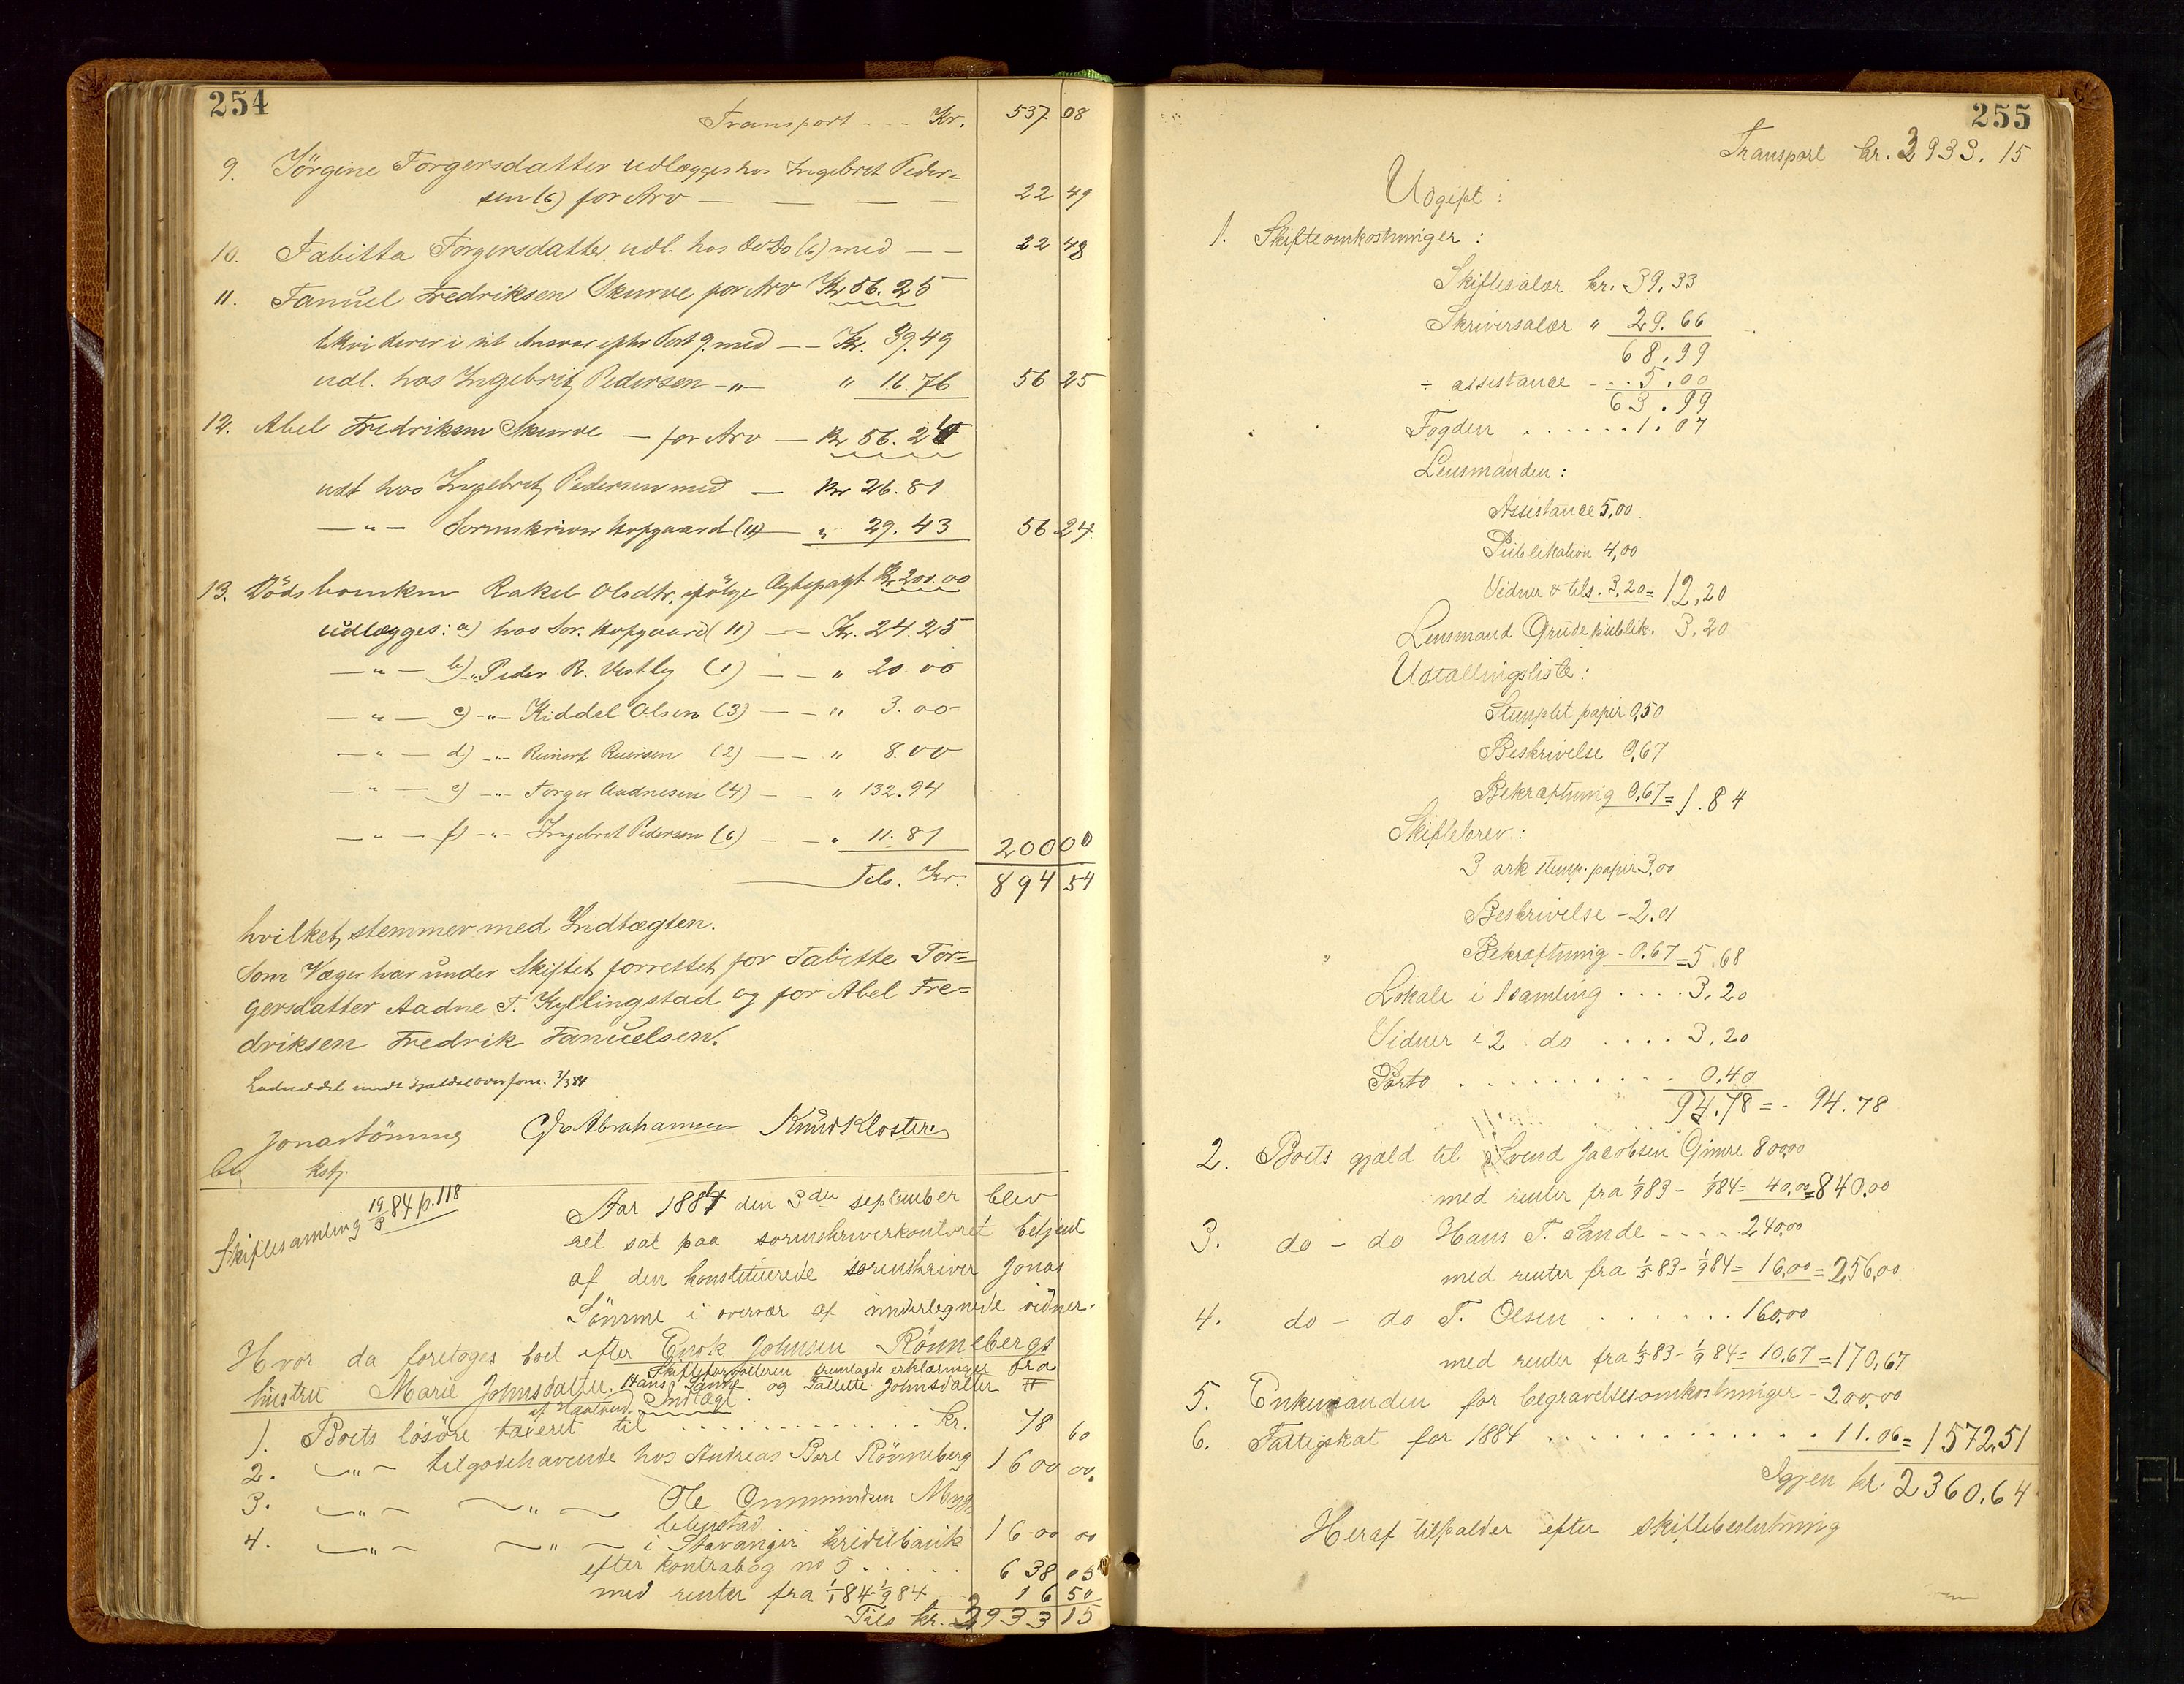 254
Transport - - - Kr. 537 08
9. Jörgine Torgersdatter udlægges hos Ingebret Peder=
sen (6) for Arv — — — — 22 49
10. Tabitta Torgersdatter udl. hos do (6) med — — 22 48
11. Tanuel Fredriksen Skurve for Arv Kr 56.25
likviderer i sit Ansvar efter Post 9 med — — Kr. 39.49
udl. hos Ingebrit Pedersen -"- " 16.76 56 25
12. Abel Fredriksen Skurve — for Arv — Kr 56.24
udl hos Ingebret Pedersen med — Kr 26.81
— " — Sorenskriver Hofgaard (11) — " 29.43 56 24
13. Dödsboenken Rakel Olsdtr. ifölge Ægtepagt Kr 200.00
udlægges: a) hos Sor. Hofgaard (11) — — Kr. 24.25
— " — b) -"- Peder R. Vestly (1) — — " 20.00
— " — c) -"- Kiddel Olsen (3) — — " 3.00
— " — d) -"- Reinert Reiersen (2) — — " 8.00
— " — e) -"- Torger Aadnesen (4) — — " 132.94
— " — f) -"- Ingebret Pedersen (6) — — " 11.81 200 00
Tils. Kr. 894 54
hvilket stemmer med Indtægten.
Som Værger har under Skiftet forrettet for Tabitte Tor=
gersdatter Aadne T. Kyllingstad og for Abel Fre=
driksen Fredrik Tanuelsen.
3/3 84
Jonas Sömme Abrahamsen Knud Kloster
kst.
Skiftesamling 19/3 84 p. 118
Aar 1884 den 3die september blev
ret sat paa sorenskriverkontoret betjent
af den konstituerede sorenskriver Jonas
Sömme i overvær af undertegnede vidner.
Hvor da foretoges boet efter Enok Johnsen Rönnebergs
Skifteforvalteren fremlagde erklæringer fra
hustru Marie Johnsdatter. Hans Sande og Tallette Johnsdatter
Indtægt
1. Boets lösöre taxeret til . . . . . . . . . . kr. 78 60
2. — " — tilgodehavende hos Andreas Bore Rönneberg 1600 00
3. — " — — " — Ole Ommundsen Myg=
lebustad 1600 00
4. — " — — " — i Stavanger kreditbank
efter kontrabog no 5 . . . . . 638 05
med renter fra 1/1 84 - 1/9 84 16 50
Tils kr. 3933 15
255
Transport kr. 3933.15
Udgift:
1. Skifteomkostninger:
Skiftesalær kr. 39.33
Skriversalær " 29.66
68.99
÷ assistance - . . 5.00
63.99
Fogden . . . . . . 1.07
Lensmanden:
Assistance 5,00
Publikation 4,00
Vidner & tils. 3.20 = 12,20
Lensmand Grude publik. 3.20
Udtallingsliste:
Stemplet papir 0,50
Beskrivelse 0,67
Bekræftning 0,67 = 1.84
Skiftebrev:
3 ark stemp. papir 3,00
Beskrivelse - 2.01
Bekræftning - 0.67 = 5.68
Lokale i 1 samling . . . . 3.20
Vidner i 2 do . . . . 3,20
Porto . . . . . . . . . . 0.40
94.78 = - 94.78
2. Boets gjæld til Svend Jacobsen Gimre 800,00
med renter fra 1/9 83 - 1/9 84 = 40,00 = 840,00
3. do - do Hans T. Sande - - - - 240,00
med renter fra 1/5 83 - 1/9 84 = 16,00 = 256,00
4. do - do T. Olsen . . . . . . 160,00
med renter fra 1/5 83 - 1/9 84 = 10.67 = 170,67
5. Enkemanden for begravelsesomkostninger - 200,00
6. Fattigskat for 1884 . . . . . . . . . . . . 11.06 = 1572,51
Igjen kr. 2360.64
Heraf tilfalder efter skiftebeslutning